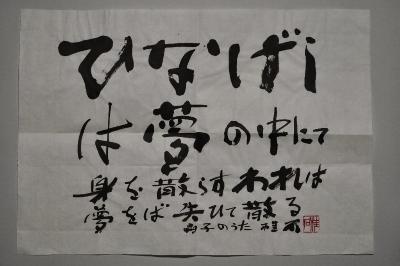 ひなげし
は夢の中にて
身を散らすわれは
夢をば失ひて散る
子のうた